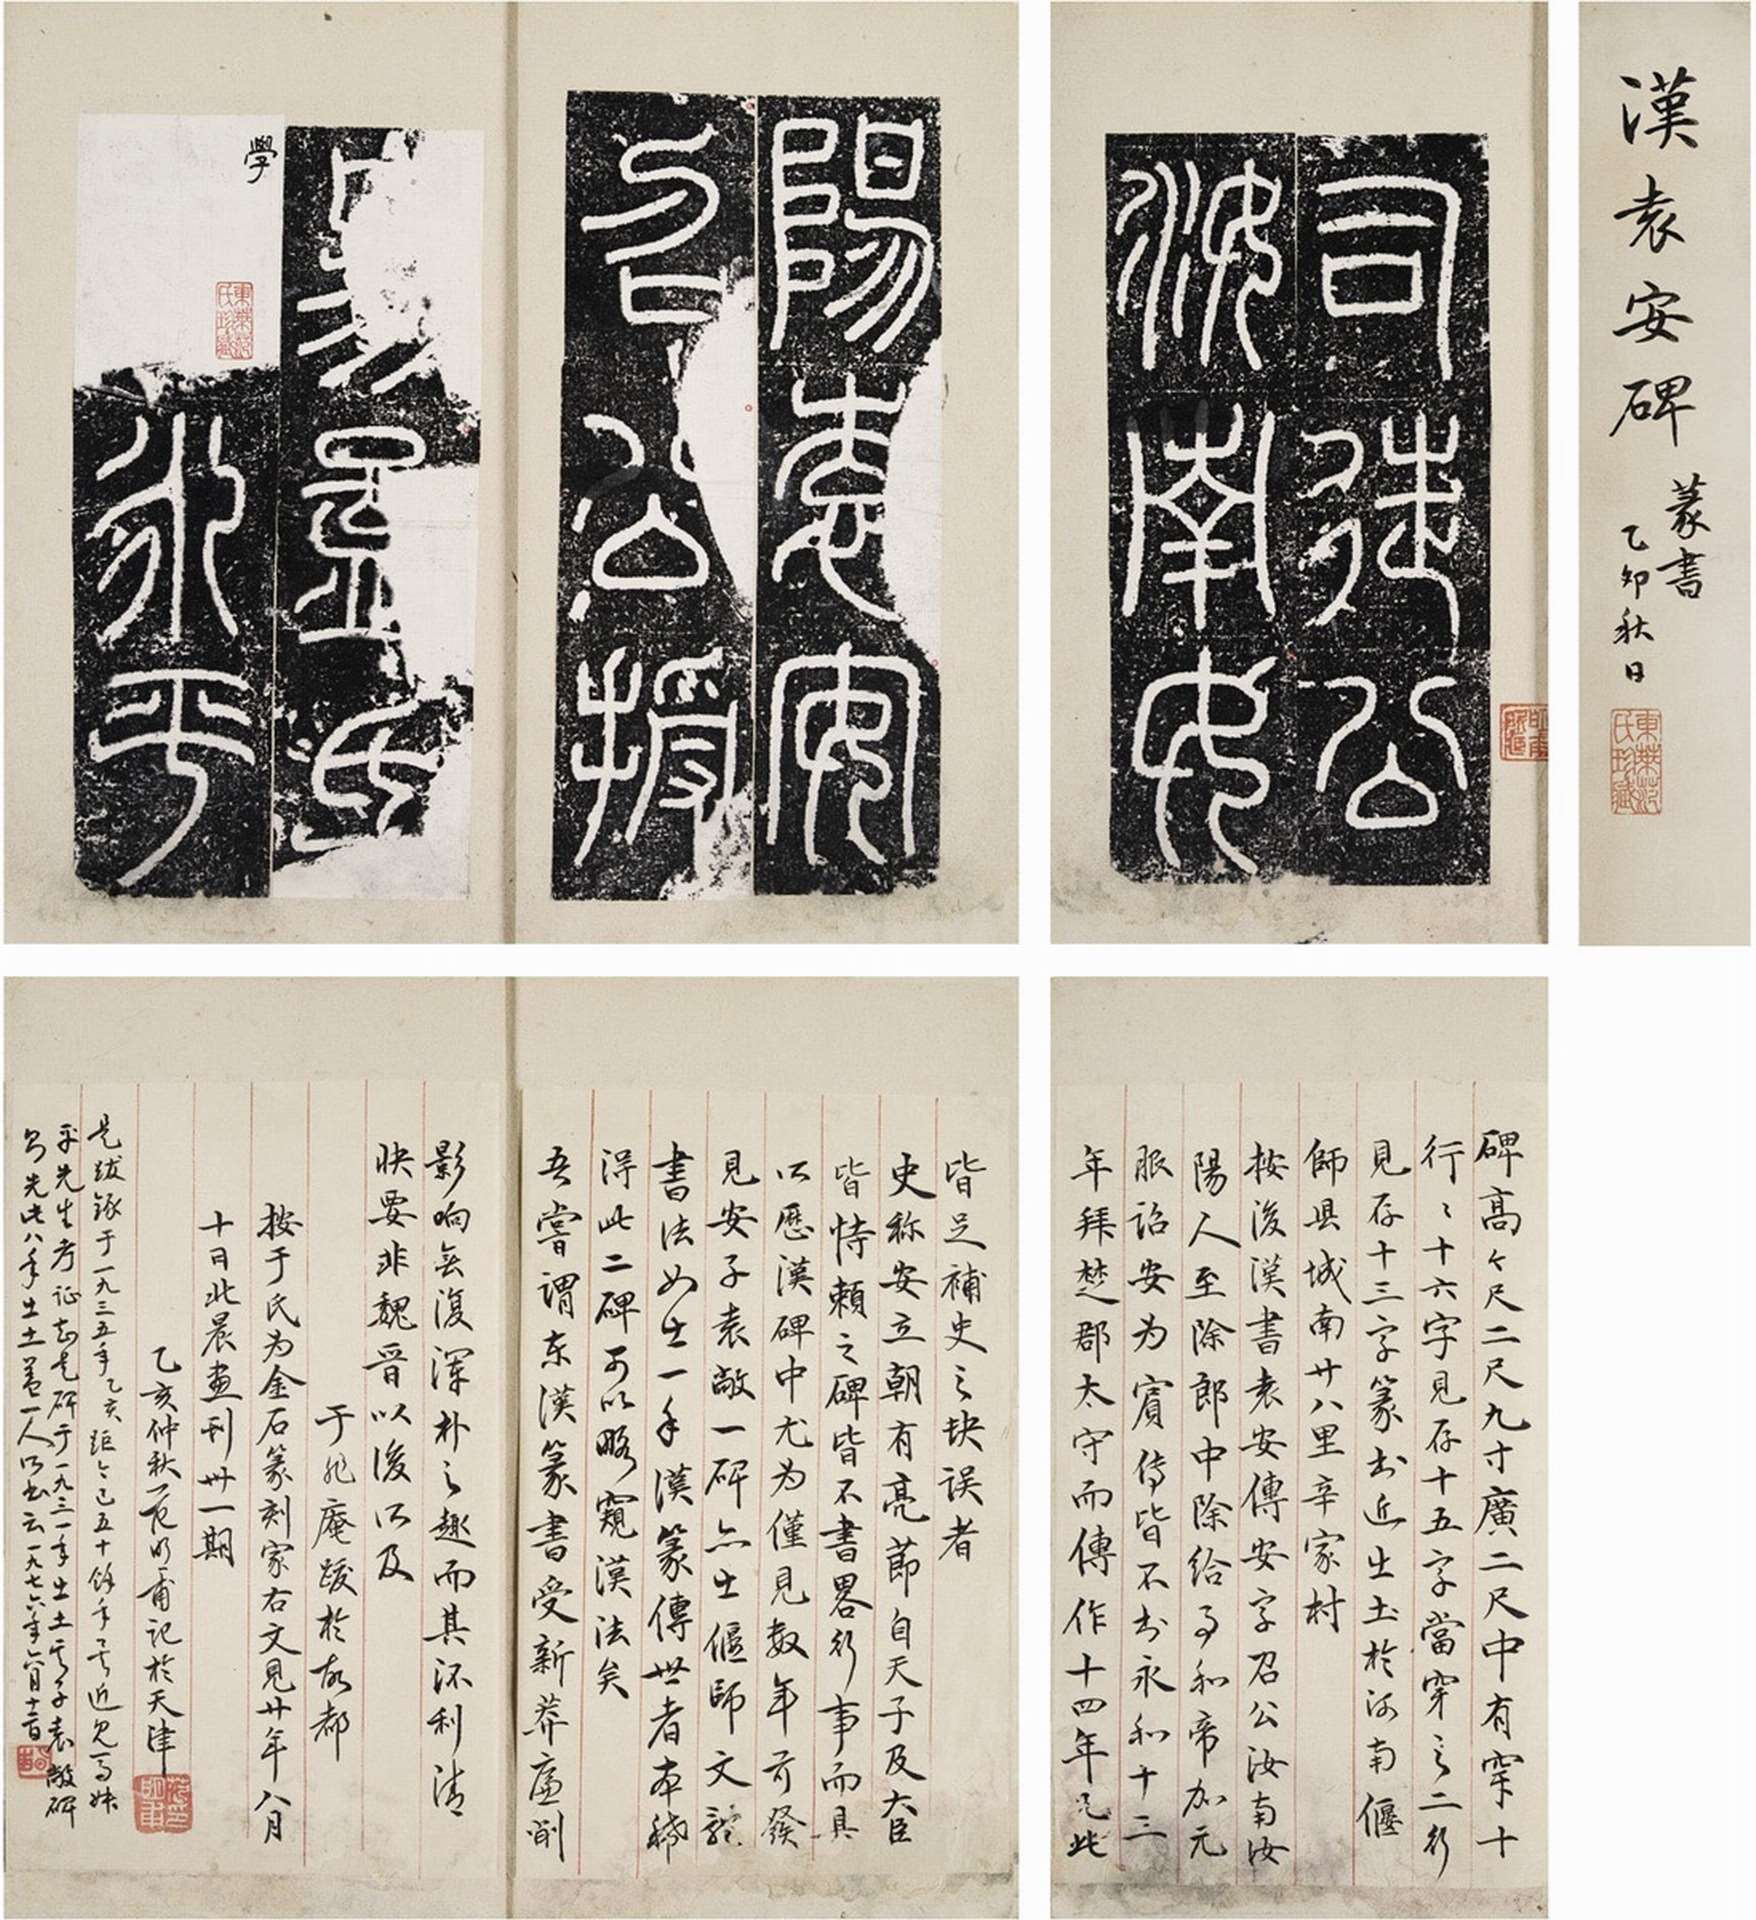 漢袁安碑
篆書
乙卯秋日
司徒公
汝南女
陽袁安
召公授
易孟氏
學
永平
碑高今尺二尺九寸廣二尺中有穿十
行〻十六字見存十五字當穿之二行
見存十三字篆书近出土於河南偃
師县城南廿八里辛家村
按後漢書袁安傳安字召公汝南汝
陽人至除郎中除給事和帝加元
服詔安为賓傳皆不书永和十三
年拜楚郡太守而傳作十四年凡此
皆足補史之缺误者
史称安立朝有亮節自天子及大臣
皆恃賴之碑皆不書畧行事而具
以歷漢碑中尤为僅見数年前發
見安子袁敞一碑亦出偃師文辭
書法如出一手漢篆傳世者本稀
得此二碑可以略窺漢法矣
吾嘗謂东漢篆書受新莽廉削
影响無復渾朴之趣而其流利清
快要非魏晋以後所及
于非庵跋於故都
按于氏为金石篆刻家右文見廿年八月
十日北晨画刊卅一期
乙亥仲秋范明甫記於天津
是跋錄于一九三五年乙亥距今已五十餘年矣近見馬妹
平先生考証知是碑于一九三一年出土其子袁敞碑
則先此八年出土盖一人所书云一九七六年六月十一日